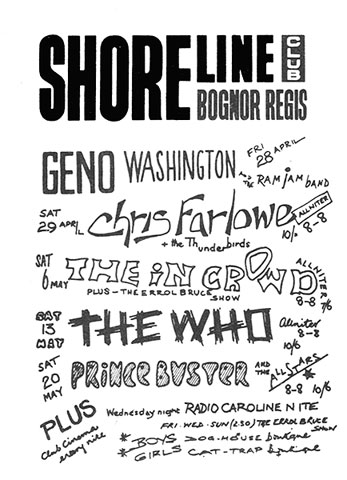 SHORELINE CLUB
BOGNOR REGIS
GENO WASHINGTON FRI 28 APRIL
AND THE RAM JAM BAND
SAT 29 APRIL Chris Farlowe ALLNITER
+ the Thunderbirds 10/- 8-8
SAT 6 MAY THE IN CROWD ALLNITER
PLUS - THE ERROL BRUCE SHOW 8-8 7/6
SAT 13 MAY THE WHO Allniter 8-8
10/6
SAT 20 MAY PRINCE BUSTER AND THE ALL STARS
8-8 10/6
PLUS Wednesday night RADIO CAROLINE NITE
Club Cinema every nite FRI. WED. SUN (2.30) THE ERROL BRUCE SHOW
* BOYS DOG-HOUSE boutique
* GIRLS CAT-TRAP boutique